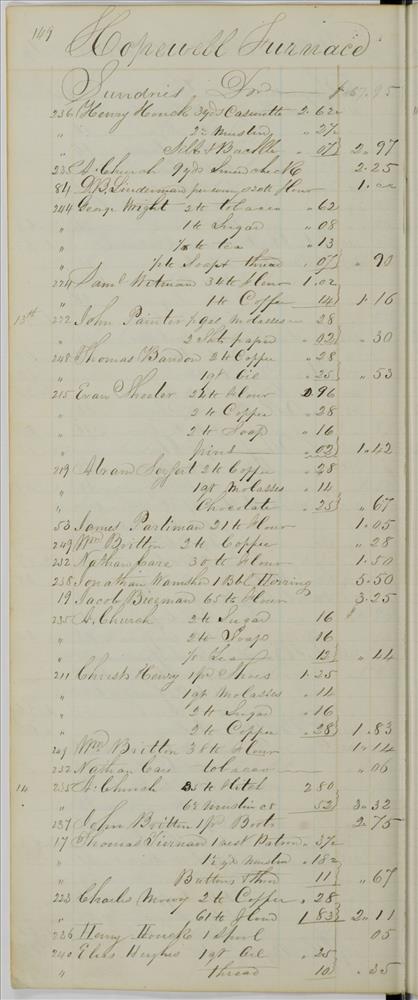 149
Hopewell Furnace
Sundries Dr $ 67.95
236 Henry Houck 3 yds Casinette 2.62½
" 2 yd Muslin " 27½
" Silk & Buckle " 07 2.97
235 A. Church 9 yds Linen check 2.25
84 D.B. Linderman flour 1.02
244 George Wright 2 lb tobacco " 62
" 1 lb Sugar " 08
" ¼ lb tea " 13
" ½ lb Soap & thread " 07 " 90
224 Saml Witman 34 lb flour 1.02
" 1 lb Coffee 14 1.16
13th 222 John Painter ½ gal molasses " 28
" 2 Shts paper " 02 " 30
248 Thomas Bandon 2 lb Coffee " 28
" 1 qt Oil " 25 " 53
215 Evan Sheeler 24 lb flour 0 96
" 2 lb Coffee " 28
" 2 lb Soap " 16
" pins " 02 1.42
219 Abram Seyfert 2 lb Coffee " 28
" 1 qt Molasses " 14
" Chocolate " 25 " 67
53 James Partiman 21 lb flour 1.05
249 Wm Britton 2 lb Coffee " 28
232 Nathan Care 30 lb flour 1.50
238 Jonathan Wamsher 1 Bbl Herring 5.50
19 Jacob Biegman 65 lb flour 3.25
235 A. Church 2 lb Sugar 16
" 2 lb Soap 16
" Tea 12 " 44
211 Christ Henry 1 pr Shoes 1.25
" 1 qt Molasses " 14
" 2 lb Sugar " 16
" 2 lb Coffee " 28 1.83
249 Wm Britton 38 lb flour 1.14
232 Nathan Care tobacco " 06
14 235 A. Church 35 lb Flitch 2 80
" 6½ muslin 52 3.32
237 John Britton 1 pr Boots 2.75
17 Thomas Tiernan 1 vest Pattern " 37½
" 1½ yds muslin " 18½
" Buttons & thrd 11 " 67
223 Charles Mowy 2 lb Coffee " 28
" 61 lb flour 1 83 2.11
236 Henry Houck 1 Spool 05
240 Elias Hughes 1 qt Oil " 25
" thread 10 " 35